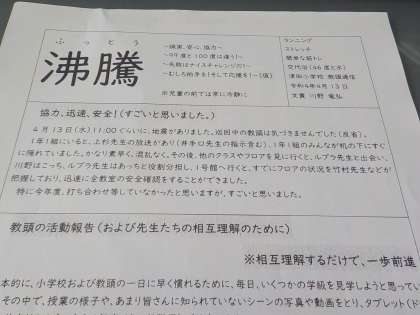 ふっとう
沸騰
~誠実、安心、協力~
~99度と100度は違う!~
~失敗はナイスチャレンジだ!~
~むしろ拍手を!そして応援を!~(仮)
※児童の前では常に冷静に
ランニング
ストレッチ
簡単な筋トレ
交代浴(46度と水)
津田小学校 教頭通信
令和4年4月13日
文責 川野 竜弘
協力、迅速、安全!(すごいと思いました。)
4月13日(水)11:00くらいに、地震がありました。巡回中の教頭は気づきませんでした(反省)。
1年1組にいると、上杉先生の放送があり(井手口先生の指示含む)、1年1組のみんなが机の下にすぐ
に隠れていました。かなり素早く、混乱なく。その後、他のクラスやフロアを見に行くと、ルブラ先生と出会い、
川野はこっち、ルブラ先生はあっちと役割分担し、1号館へ行くと、すでにフロアの状況を竹村先生などが
把握しており、迅速に全教室の安全確認をすることができました。
特に今年度、打ち合わせ等していなかったと思いますが、すごいと思いました。
教頭の活動報告(および先生たちの相互理解のために)
※相互理解するだけで、一歩前進
本的に、小学校および教頭の一日に早く慣れるために、毎日、いくつかの学級を見学しようと思ってい
その中で、授業の様子や、あまり皆さんに知られていないシーンの写真や動画をとり、タブレット(ド